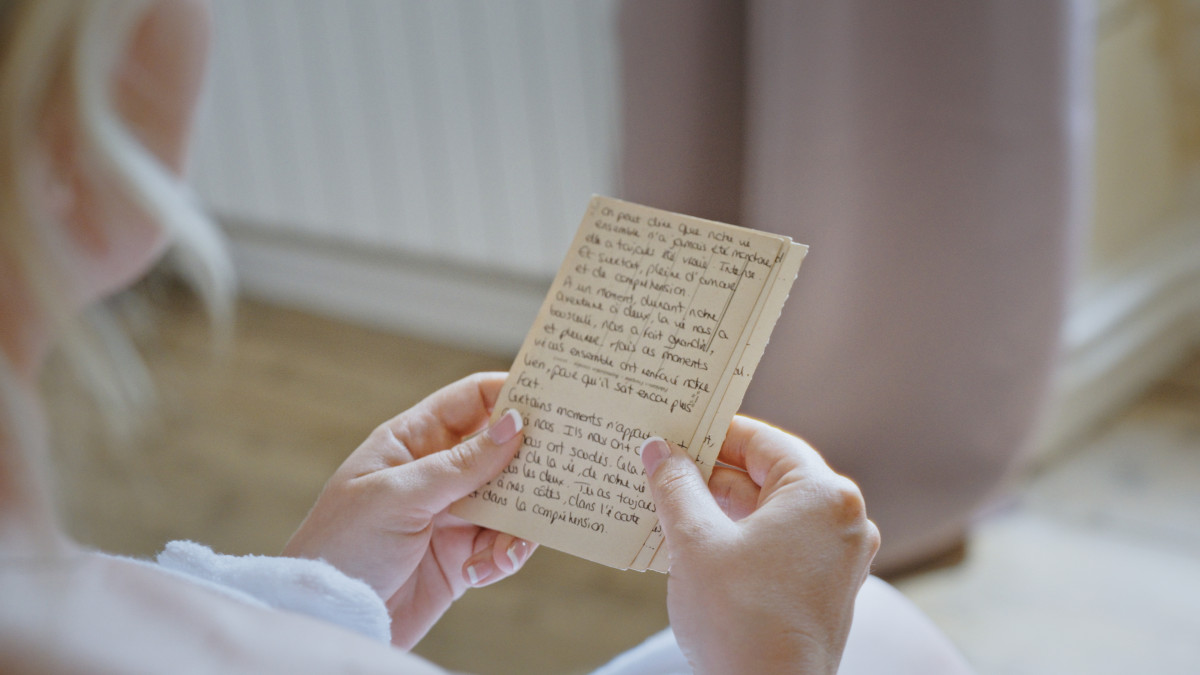 on peux dire que notre vie
ensemble n'a jamais été monotone
elle a toujours été vraie. Intense.
Et surtout, pleine d'amour
et de compréhension.
À un moment, durant notre
aventure à deux, la vie nous a
bousculé, nous a fait grandir,
et pleurer. Mais as moments
vécus ensemble ont renforcé notre
lien, pour qu'il soit encore plus
fort.
Certains moments n'appart
à nous. Ils nous ont
nous ont soudés. Cela
de la vie, de notre vie
us les deux. Tu as toujours
à mes côtés, dans l'écoute
et dans la compréhension.